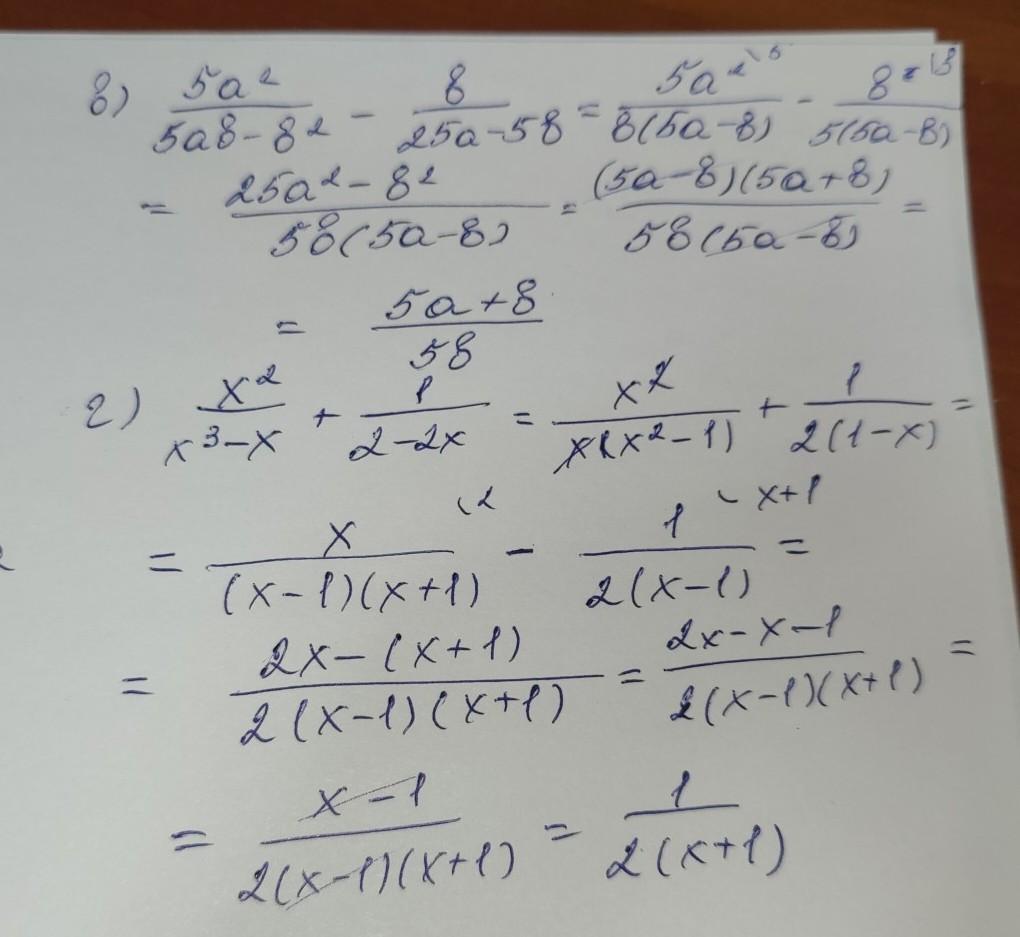 в) 5a²/(5ab-b²) - b/(25a-5b) = 5a² \5/(b(5a-b)) - b \b/(5(5a-b))
= (25a²-b²)/(5b(5a-b)) = ((5a-b)(5a+b))/(5b(5a-b)) =
= (5a+b)/(5b)
г) x²/(x³-x) + 1/(2-2x) = x²/(x(x²-1)) + 1/(2(1-x)) =
= x \2/((x-1)(x+1)) - 1 \x+1/(2(x-1)) =
= (2x-(x+1))/(2(x-1)(x+1)) = (2x-x-1)/(2(x-1)(x+1)) =
= (x-1)/(2(x-1)(x+1)) = 1/(2(x+1))